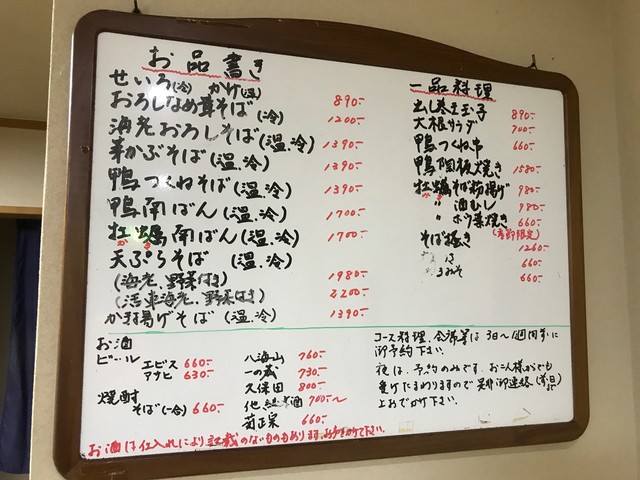 お品書き
せいろ(冷) かけ(温) 890-
おろしなめ茸そば(冷) 1200-
海老おろしそば(温.冷) 1390-
芽かぶそば(温.冷) 1390-
鴨つくねそば(温.冷) 1390-
鴨南ばん(温.冷) 1700-
牡蠣南ばん(温.冷) 1700-
かき
天ぷらそば(温.冷)
(海老.野菜付き) 1980-
(活車海老.野菜付き) 2200-
かき揚げそば(温.冷) 1390-
一品料理
出し巻玉子 890-
大根サラダ 700-
鴨つくね串 660-
鴨陶板焼き 1580-
牡蠣そば粉揚げ 980-
かき
〃 酒むし 980-
〃 ホウ葉焼き 660-
(季節限定)
そば掻き 1260-
660-
みそ 660-
お酒
ビール
エビス 660-
アサヒ 630-
焼酎
そば(一合) 660-
八海山 760-
一の蔵 730-
久保田 800-
他 酒 700-〜
菊正宗 660-
コース料理.会席等は3日〜1週間前に
御予約下さい。
夜は、予約のみです。お二人様からでも
受けたまわりますので是非御連絡(前日)まで
上おでかけ下さい。
お酒は仕入れにより記載のないものもあります。お声をかけて下さい。